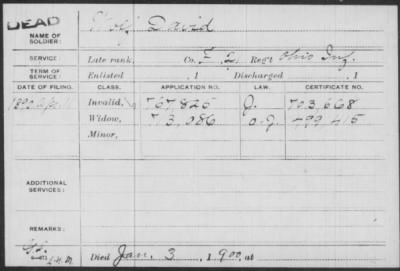 DEAD
NAME OF SOLDIER: David
SERVICE: Late rank, Co. F 2, Regt Ohio Inf.
TERM OF SERVICE: Enlisted , 1 Discharged , 1
DATE OF FILING. CLASS. APPLICATION NO. LAW. CERTIFICATE NO.
Invalid, 767,825 J. 703,668
Widow, 713,086 O.J. 499,415
Minor,
ADDITIONAL SERVICES:
REMARKS:
Died Jan. 3, 1900, at